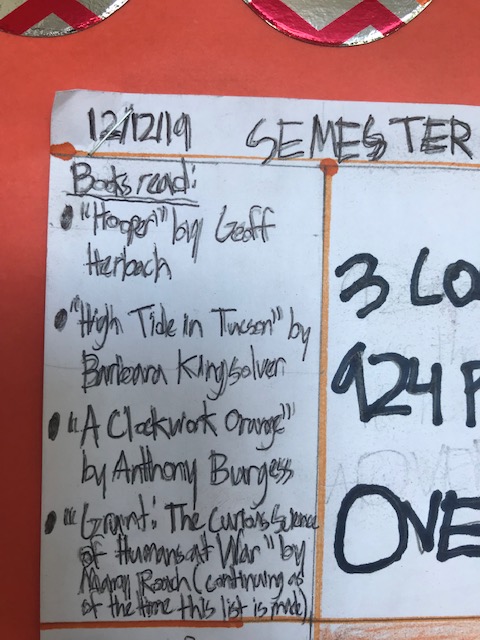 12/12/19
SEMESTER
Books read:
• "Hooper" by Geoff
Herbach
• "High Tide in Tucson" by
Barbara Kingsolver
• "A Clockwork Orange"
by Anthony Burgess
• "Grunt: The Curious Science
of Humans at War" by
Mary Roach (continuing as
of the time this list is made)
3 CO
924 P
OVE